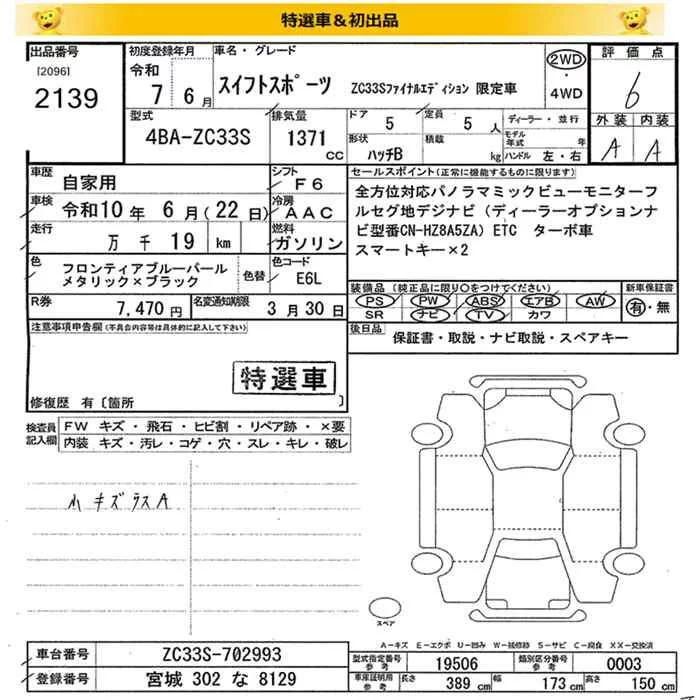 特選車＆初出品
出品番号 初度登録年月 車名・グレード 評価点
[2096] 2139 令和 7 6月 スイフトスポーツ ZC33Sファイナルエディション 限定車 2WD・4WD 6
型式 排気量 ドア 定員 ディーラー・並行 外装 内装
4BA-ZC33S 1371 cc 5 5 人 モデル年式 年 A A
形状 ハッチB 積載 kg ハンドル 左・右
車歴 自家用 シフト F6 セールスポイント(正常に機能するものに限ります)
車検 令和10年 6月(22日) 冷房 AAC 全方位対応パノラマミックビューモニターフ
ルセグ地デジナビ（ディーラーオプションナ
走行 万 千 19 km 燃料 ガソリン ビ型番CN-HZ8A5ZA）ETC ターボ車
スマートキー×2
色 フロンティアブルーパール 色替 色コード E6L
メタリック×ブラック
装備品(純正品に限り○をつけてください) 新車保証書
PS PW ABS エアB AW 有・無
SR ナビ TV カワ
R券 7,470円 名変通知期限 3月30日
注意事項申告欄(不具合内容等は具体的に記入して下さい) 後日品 保証書・取説・ナビ取説・スペアキー
特選車
修復歴 有〔箇所 〕
検査員記入欄 FW キズ・飛石・ヒビ割・リペア跡・×要
内装 キズ・汚レ・コゲ・穴・スレ・キレ・破レ
小キズラスA
スペア
A-キズ E-エクボ U-凹み W-補修跡 S-サビ C-腐食 XX-交換済
車台番号 ZC33S-702993 型式指定番号 参考 19506 類別区分番号 参考 0003
登録番号 宮城 302 な 8129 車庫証明用 参考 長さ 389 cm 幅 173 cm 高さ 150 cm